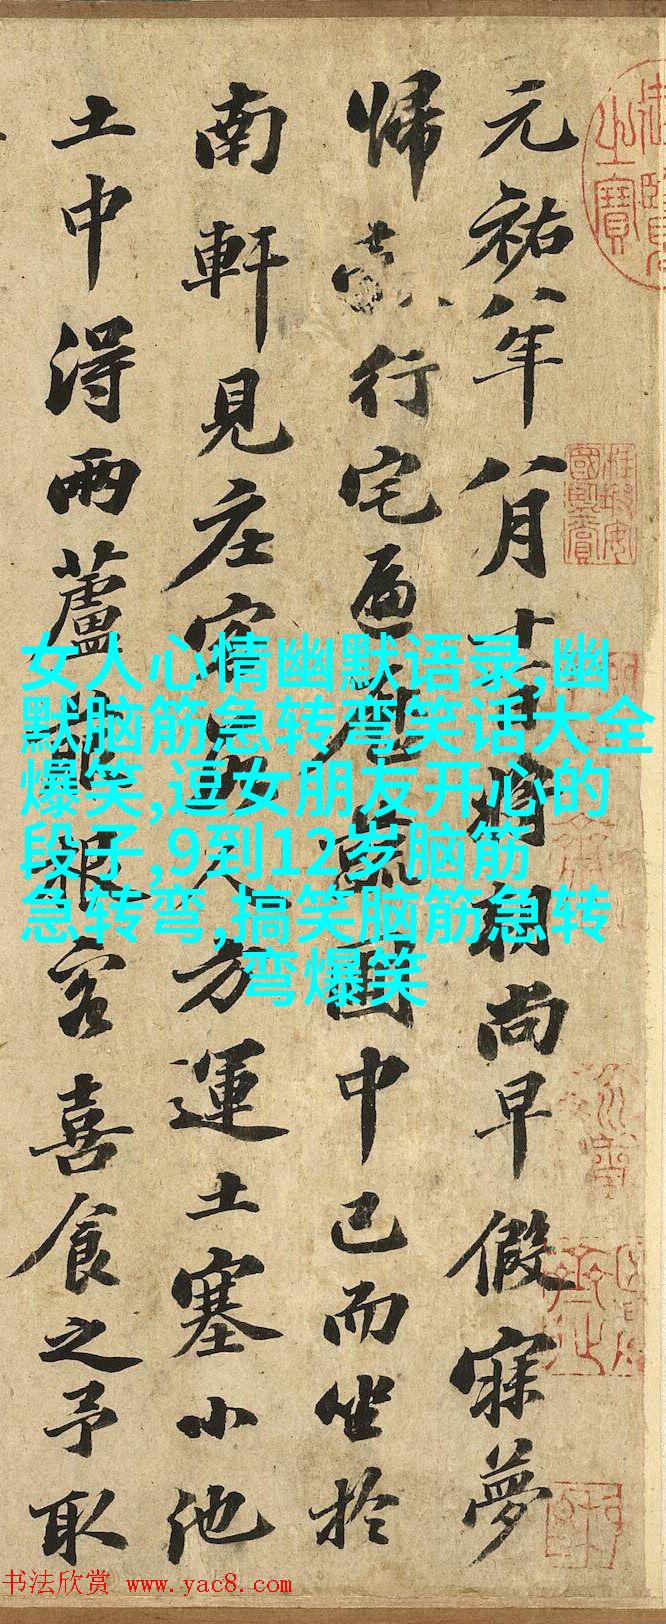 元祐八年八月十一日將朝尚早假寐夢
歸行宅遍歷蔬圃中已而坐於
南軒見庄客數人方運土塞小池
土中得兩蘆菔根客喜食之予取
女人心情幽默语录,幽
默脑筋急转弯笑话大全
爆笑,逗女朋友开心的
段子,9到12岁脑筋
急转弯,搞笑脑筋急转
弯爆笑
书法欣赏 www.yac8.com